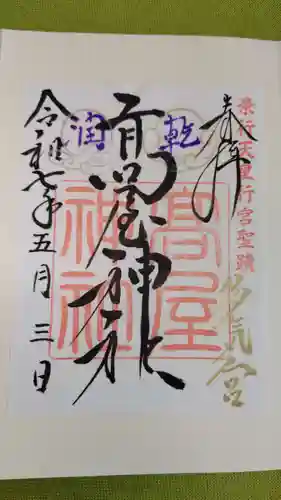 景行天皇行宮聖蹟
奉拝
乾
潤
高屋神社
高屋神社
令和七年五月三日